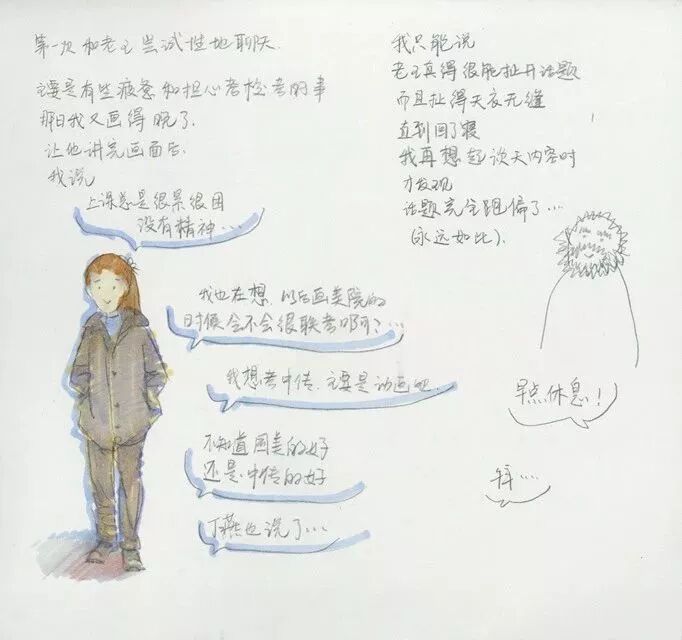 第一次和老王尝试性地聊天
主要是有些疲惫和担心考校考的事
那日我又画得晚了.
让他讲完画面后.
我说
上课总是很累很困
没有精神...
我也在想.以后画美院的
时候会不会很联考啊?...
我想考中传.主要是动画吧.
不知道国美的好
还是.中传的好
丁燕也说了...
我只能说
老王真得很能扯开话题
而且扯得天衣无缝
直到回了寝
我再想起谈天内容时
才发现
话题完全跑偏了...
(永远如此).
早点休息!